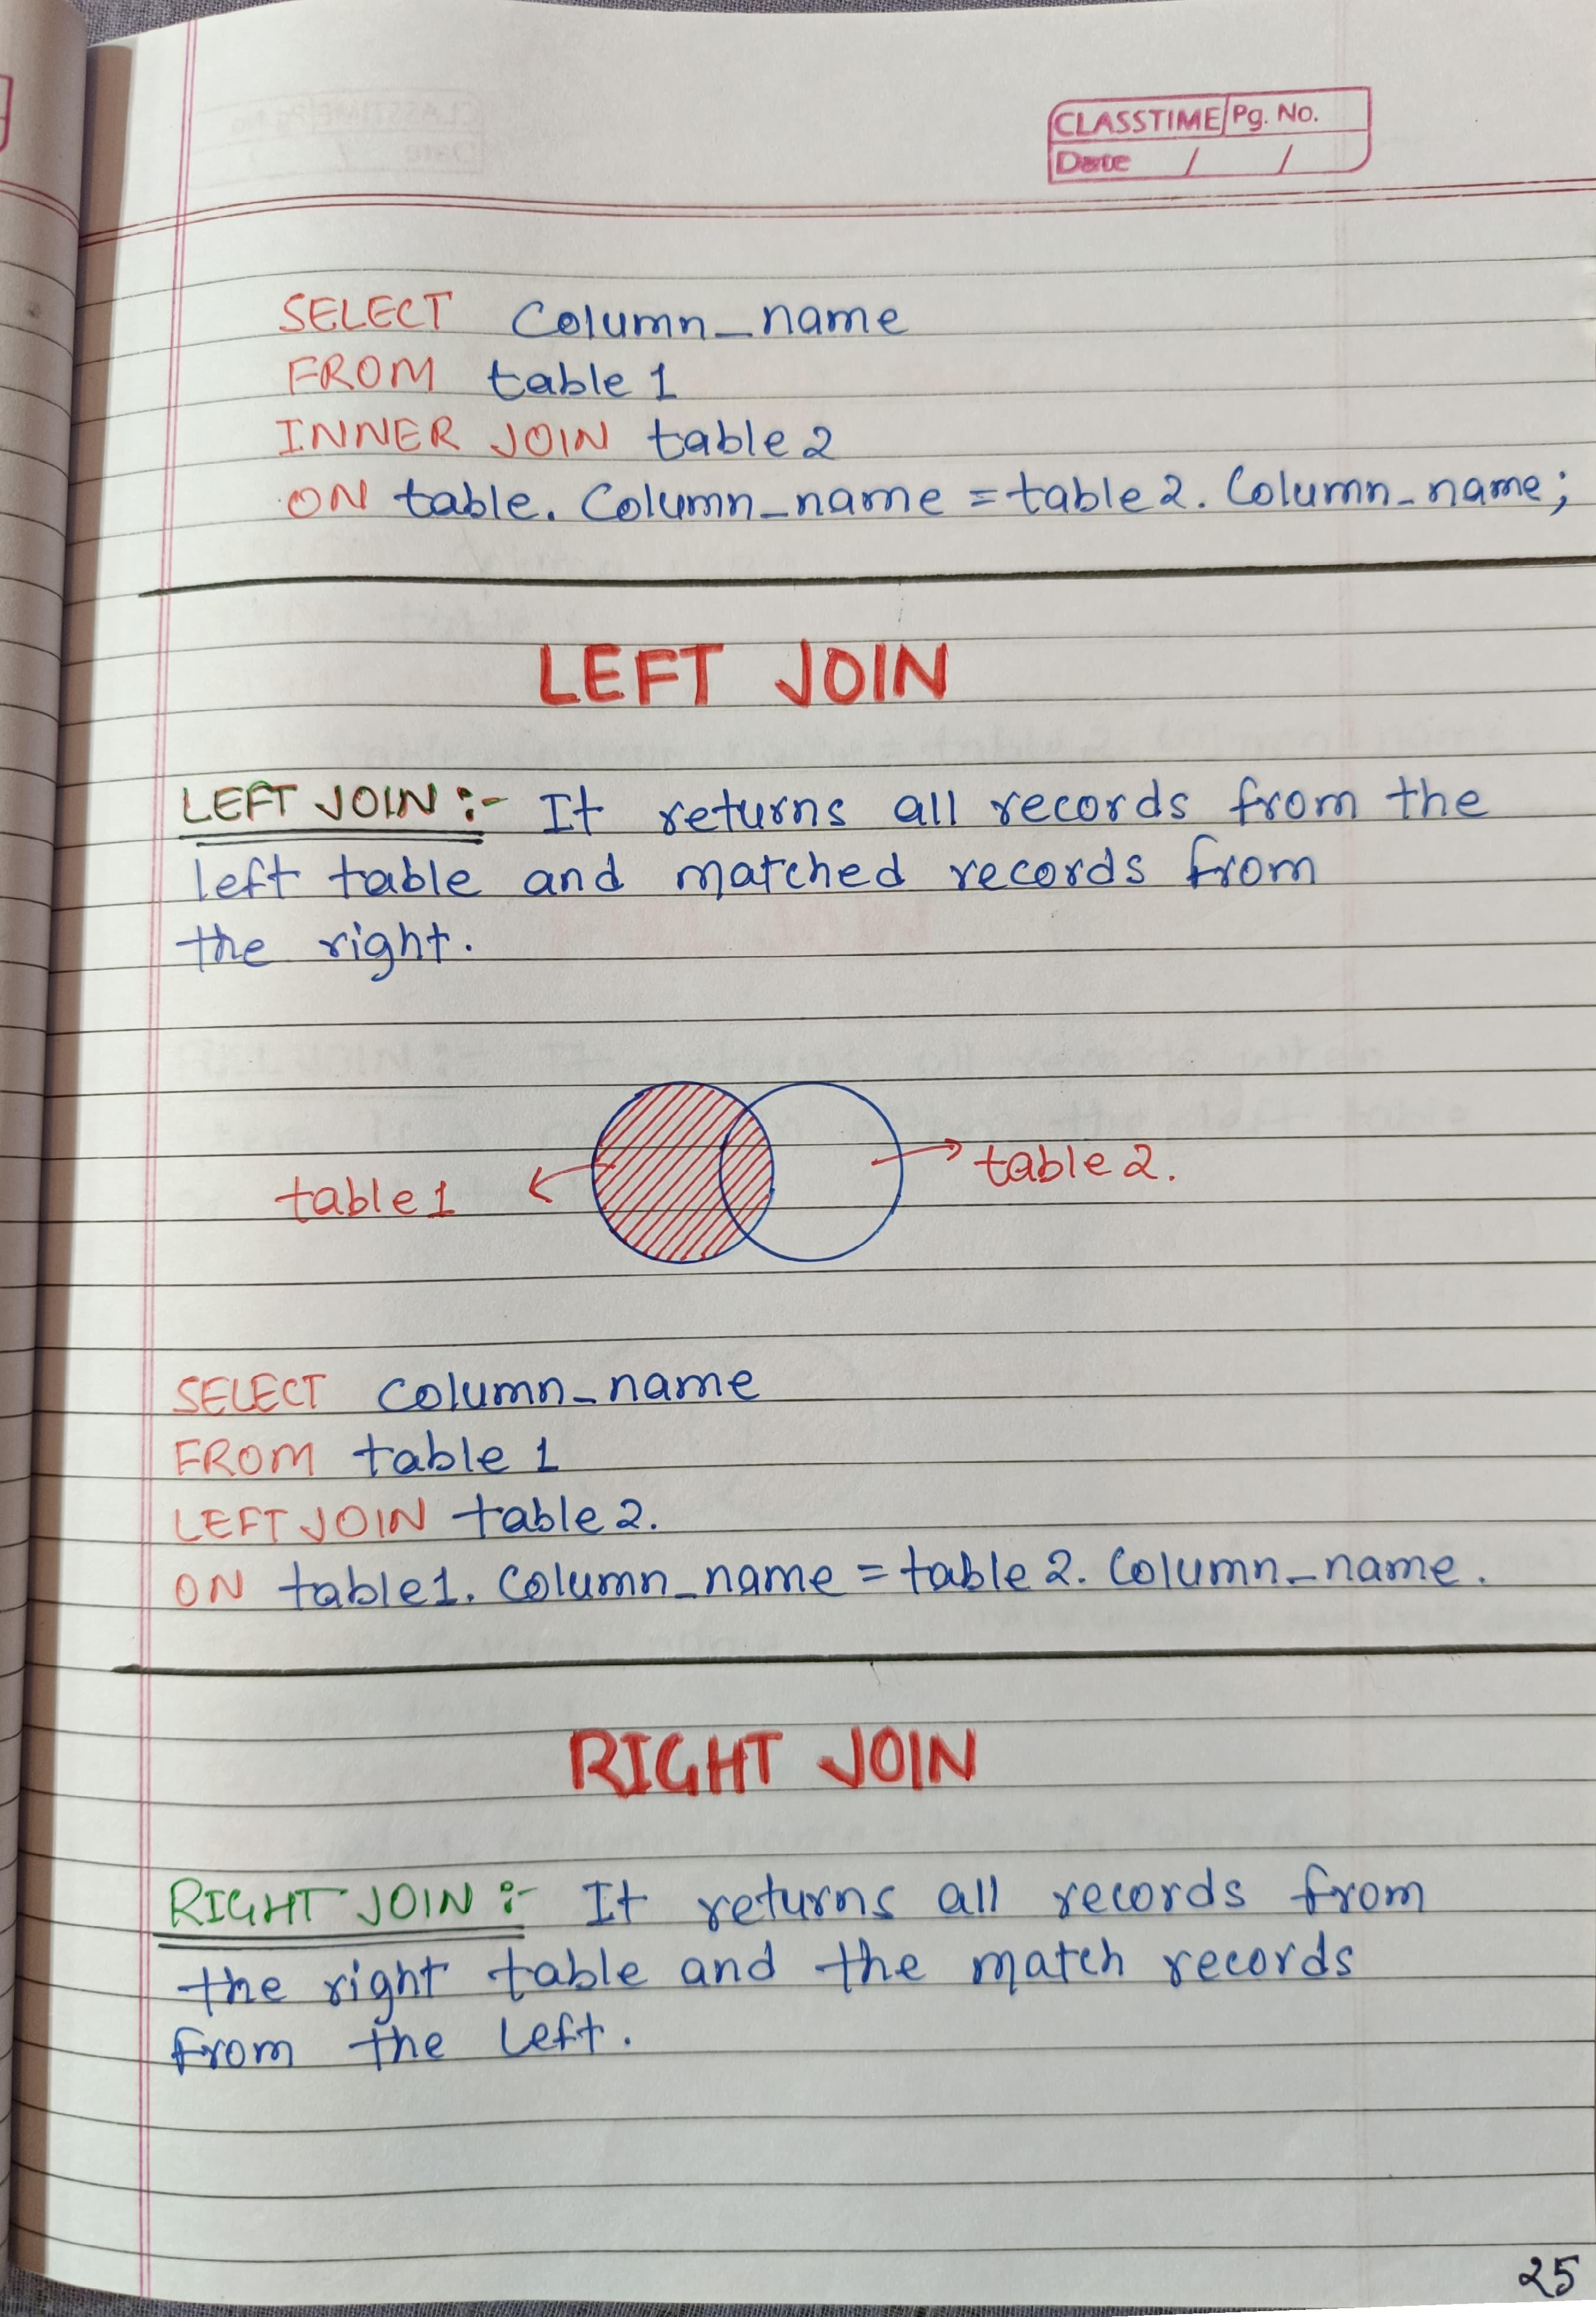 CLASSTIME Pg. No.
Date / /
SELECT Column_name
FROM table 1
INNER JOIN table 2
ON table. Column_name = table 2. Column_name;
LEFT JOIN
LEFT JOIN :- It returns all records from the
left table and matched records from
the right.
table 1
table 2.
SELECT Column_name
FROM table 1
LEFT JOIN table 2.
ON table1. Column_name = table 2. Column_name.
RIGHT JOIN
RIGHT JOIN :- It returns all records from
the right table and the match records
from the left.
25